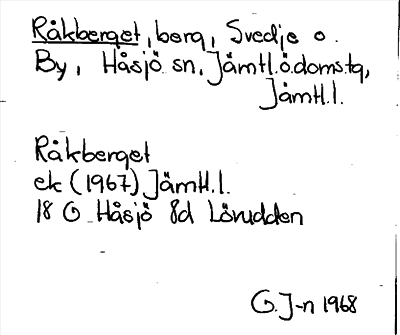 Råkberget, berg, Svedje o.
By, Håsjö sn, Jämtl.ö.doms.tg,
Jämtl.l.
Råkberget
ek (1967) Jämtl.l.
18 G Håsjö 8d Lövudden
G.J-n 1968